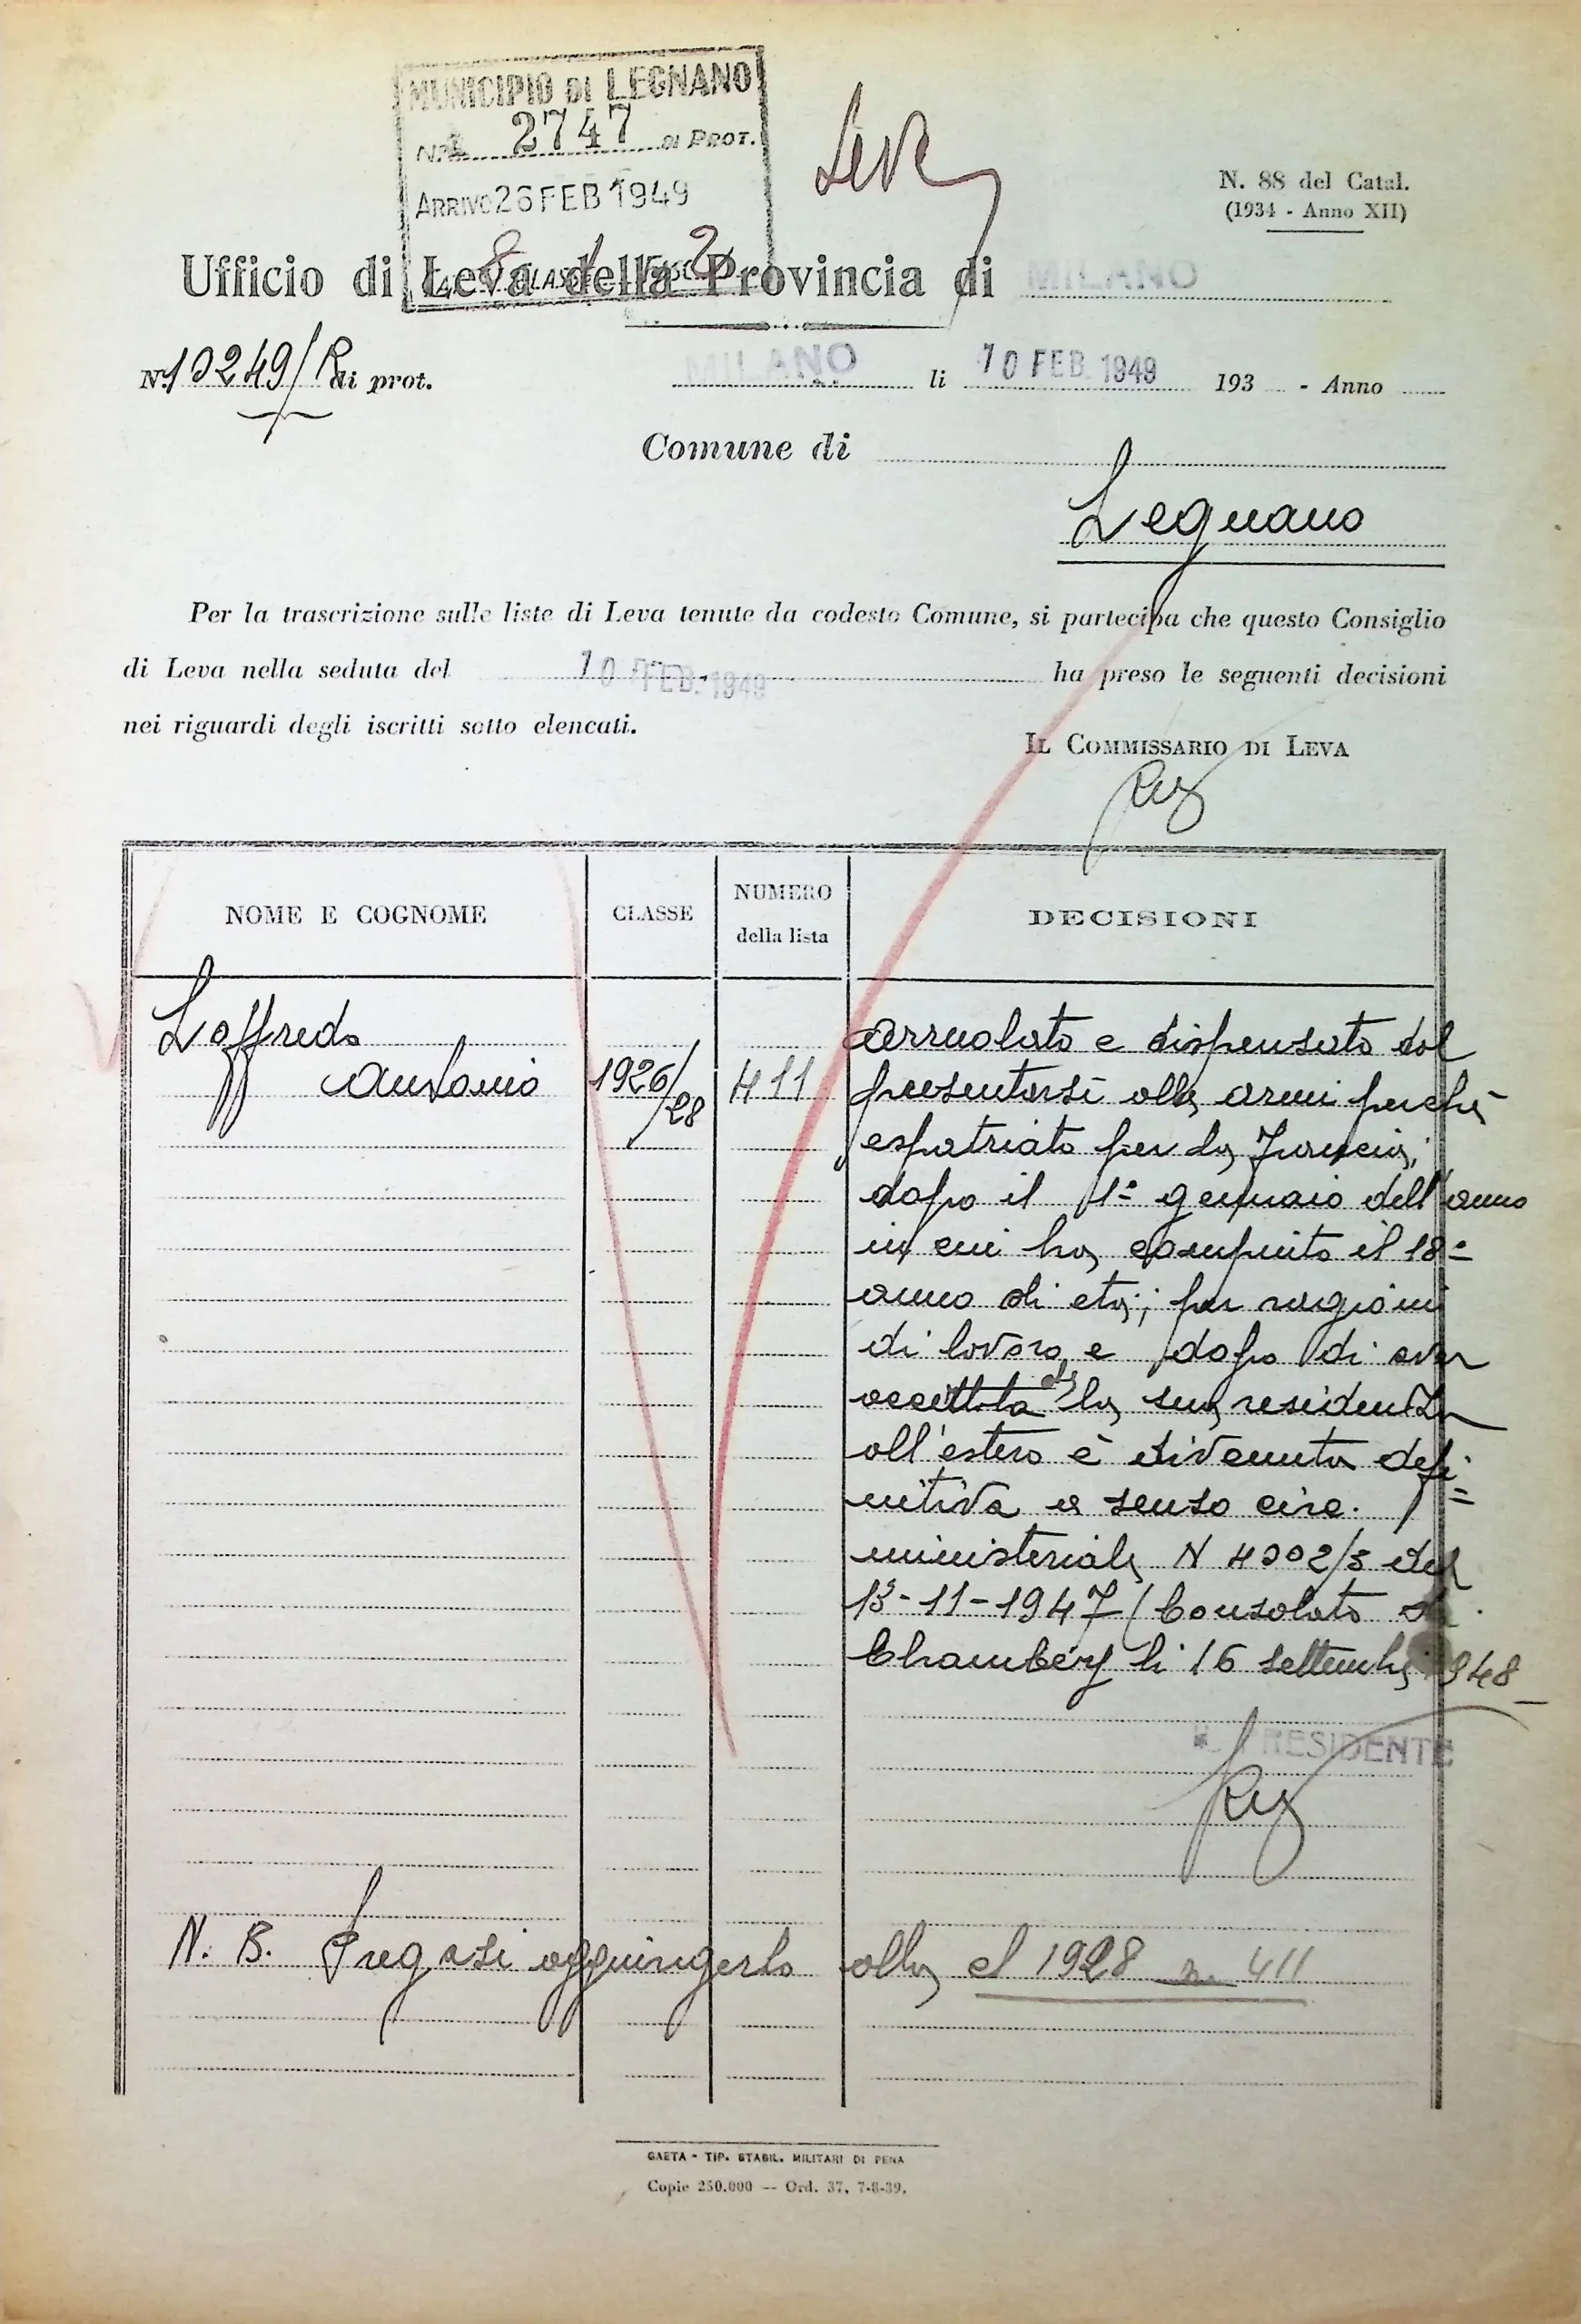 MUNICIPIO DI LEGNANO
N. 2747 DI PROT.
ARRIVO 26 FEB 1949
8 1 2
Leva
N. 88 del Catal.
(1934 - Anno XII)
Ufficio di Leva della Provincia di MILANO
N. 10249/R di prot.
MILANO li 10 FEB. 1949 193 - Anno
Comune di
Legnano
Per la trascrizione sulle liste di Leva tenute da codesto Comune, si partecipa che questo Consiglio
di Leva nella seduta del 10 FEB. 1949 ha preso le seguenti decisioni
nei riguardi degli iscritti sotto elencati.
IL COMMISSARIO DI LEVA
NOME E COGNOME CLASSE NUMERO della lista DECISIONI
Loffredo
Antonio 1926/28 411
Arruolato e dispensato dal
presentarsi alle armi perchè
espatriato per la Francia,
dopo il 1° gennaio dell'anno
in cui ha compiuto il 18°
anno di età; per ragioni
di lavoro e dopo di aver
accettata la sua residenza
all'estero è divenuta defi=
nitiva a senso circ.
ministeriale N 4002/3 del
13-11-1947 (Consolato di
Chambéry li 16 settembre 1948
IL PRESIDENTE
N. B. Pregasi aggiungerlo alla cl 1928 n. 411
GAETA - TIP. STABIL. MILITARI DI PENA
Copie 250.000 — Ord. 37, 7-8-39.